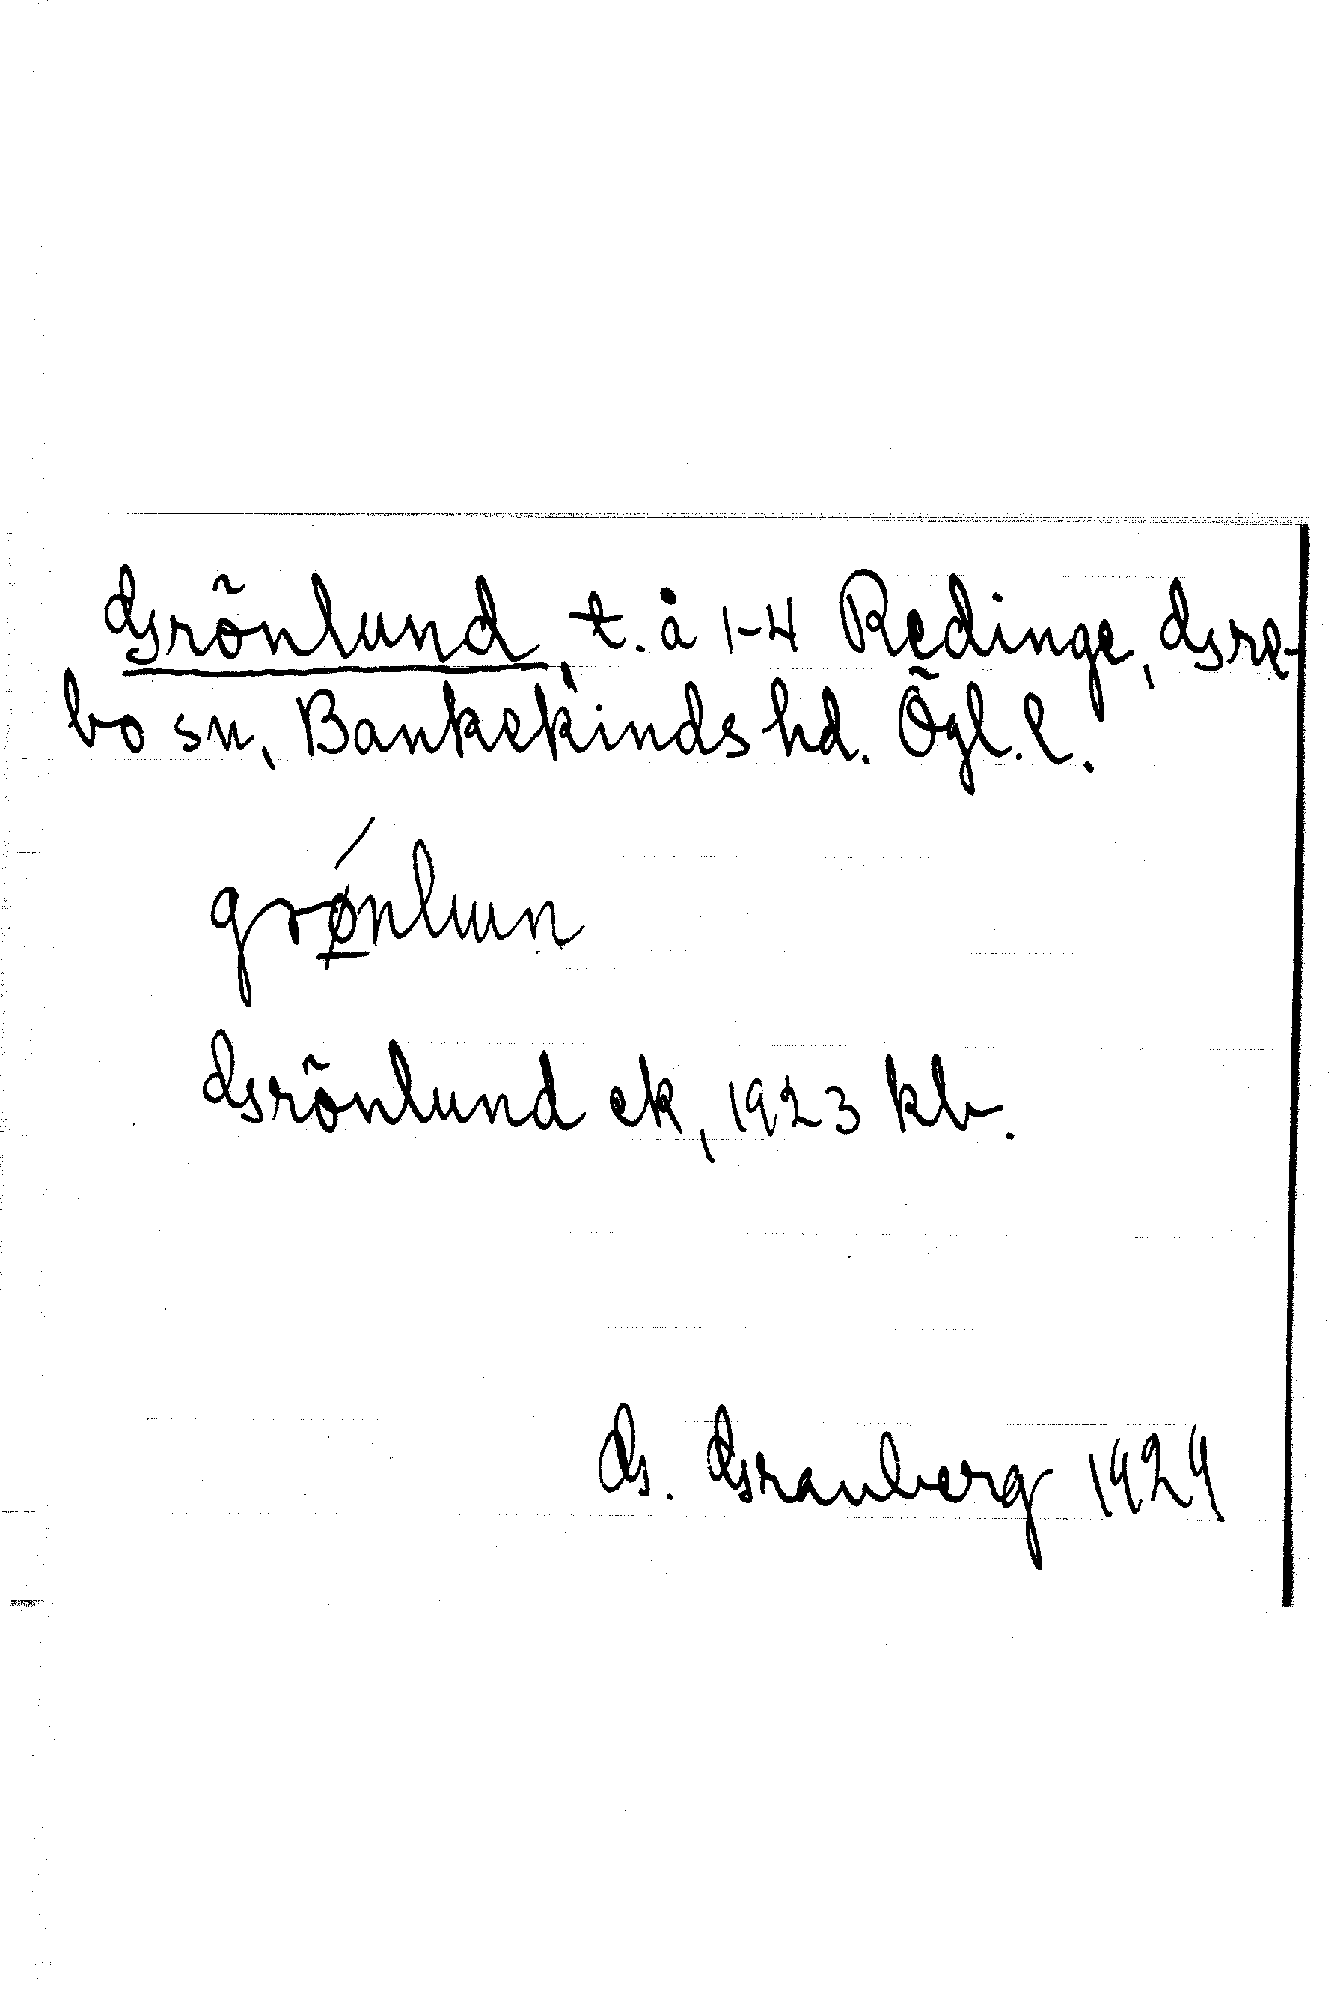 Grönlund, t. å 1-4 Redinge, Gre-
bo sn, Bankekinds hd. Ögl. l.
grǿnlun
Grönlund ek, 1923 kb.
G. Granberg 1929